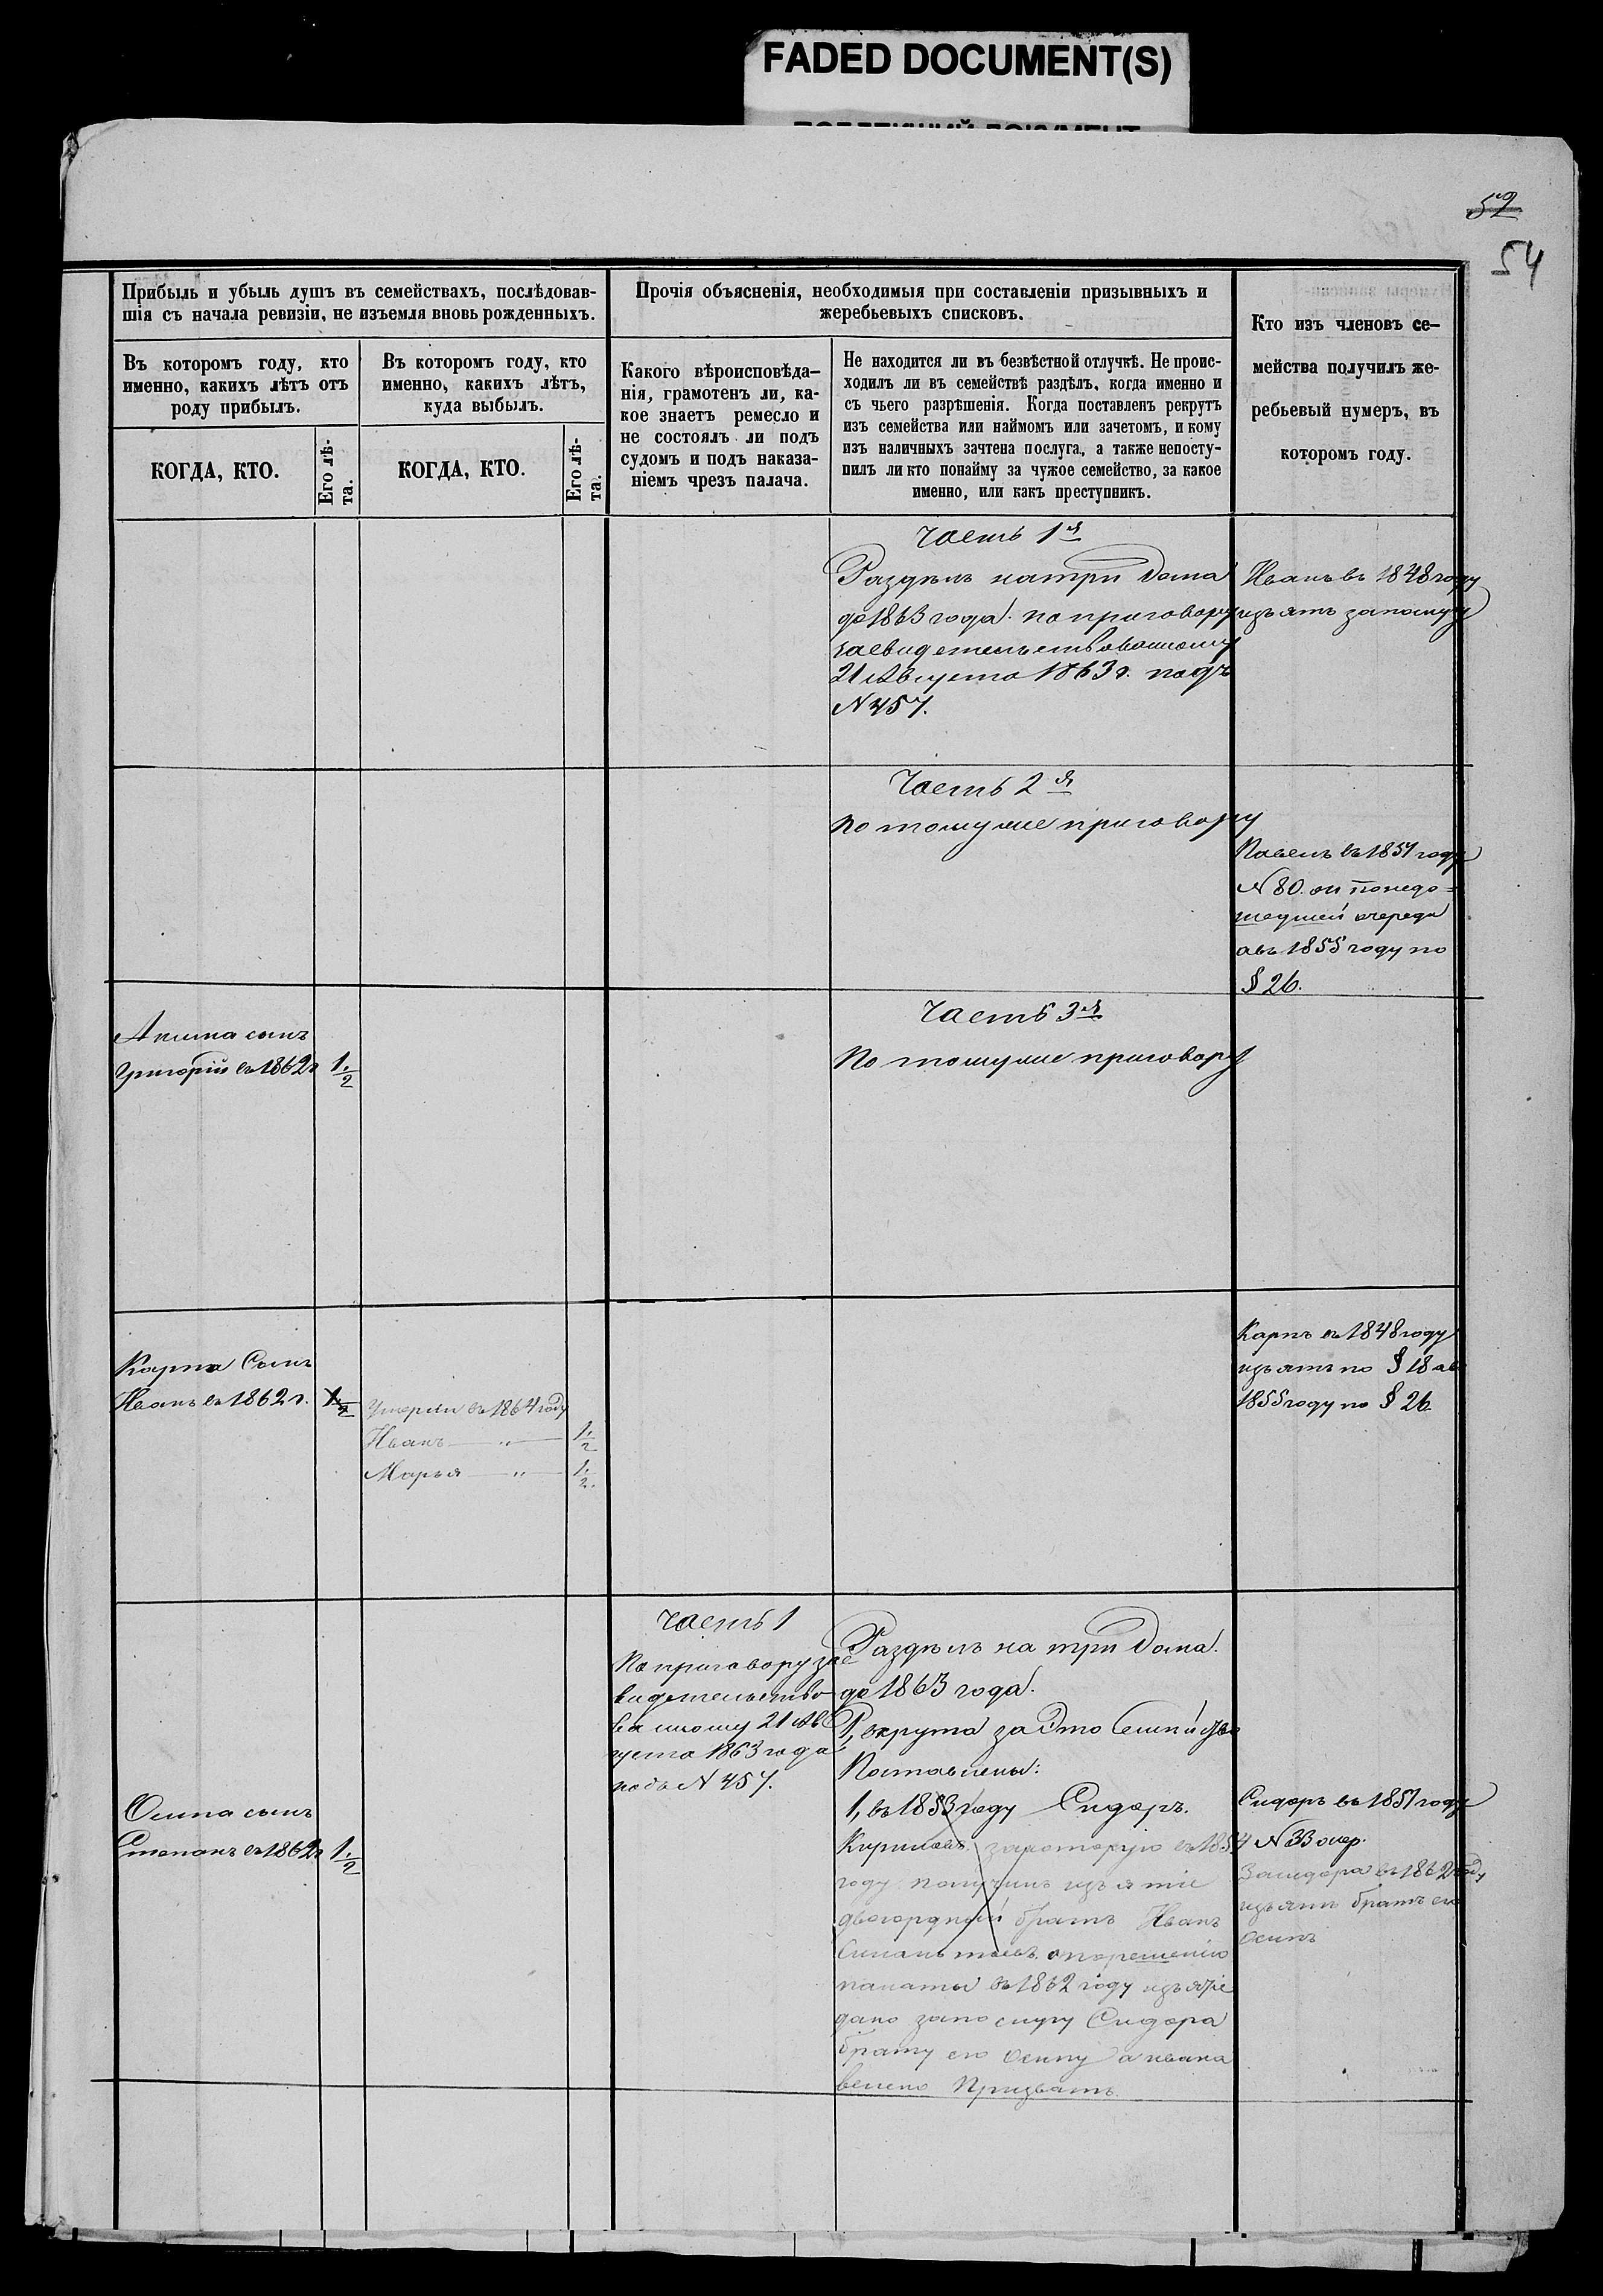 FADED DOCUMENT(S)
52
54
Прибыль и убыль душъ въ семействахъ, послѣдовав-
шія съ начала ревизіи, не изъемля вновь рожденныхъ.
Въ котором году, кто
именно, какихъ лѣтъ отъ
роду прибылъ.
КОГДА, КТО.
Его лѣ-
та.
Въ котором году, кто
именно, какихъ лѣтъ,
куда выбылъ.
КОГДА, КТО.
Его лѣ-
та.
Прочія объясненія, необходимыя при составленіи призывныхъ и
жеребьевыхъ списковъ.
Какого вѣроисповѣда-
нія, грамотенъ ли, ка-
кое знаетъ ремесло и
не состоялъ ли подъ
судомъ и подъ наказа-
ніемъ чрезъ палача.
Не находится ли въ безвѣстной отлучкѣ. Не проис-
ходилъ ли въ семействѣ раздѣлъ, когда именно и
съ чьего разрѣшенія. Когда поставленъ рекрутъ
изъ семейства или наймомъ или зачетомъ, и кому
изъ наличныхъ зачтена послуга, а также непосту-
пилъ ли кто понайму за чужое семейство, за какое
именно, или какъ преступникъ.
Кто изъ членовъ се-
мейства получилъ же-
ребьевый нумеръ, въ
которомъ году.
Часть 1я
Раздѣлъ на три дома
до 1863 года по приговору
засвидетельствованному
21 Августа 1863 г. подъ
N 457.
Иванъ въ 1848 году
изъятъ за послугу
Часть 2я
По томуже приговору
Павелъ въ 1851 году
N 80. он понедо=
шедшей очереди
авъ 1855 году по
§ 26.
Акима сынъ
Григорій въ 1862 г
1/2
Часть 3я
По томуже приговору
Карпа Сынъ
Иванъ въ 1862 г.
1/2
Умерли въ 1864 году
Иванъ — " — 1/2
Марья — " — 1/2.
Карпъ въ 1848 году
изъятъ по § 18 ав
1855 году по § 26
Часть 1
По приговору зас
видетельство
ванному 21 Ав
густа 1863 года
подъ N 457.
Раздѣлъ на три дома.
до 1863 года.
Рекрута за Это Семейство
Поставлены:
1, въ 1853 году Сидоръ.
Кириловъ. закоторую въ 1854
году получилъ изъятіе
двоюродный братъ Иванъ
порешенію
палаты въ 1862 году изъятіе
дано запослугу Сидора
брату его Осипу а ивана
велено Призвать.
Осипа сынъ
Степанъ въ 1862 г
1/2
Сидоръ въ 1851 году
N 33 очер.
Засидора въ 1862 году
изъятъ братъ его
Осипъ